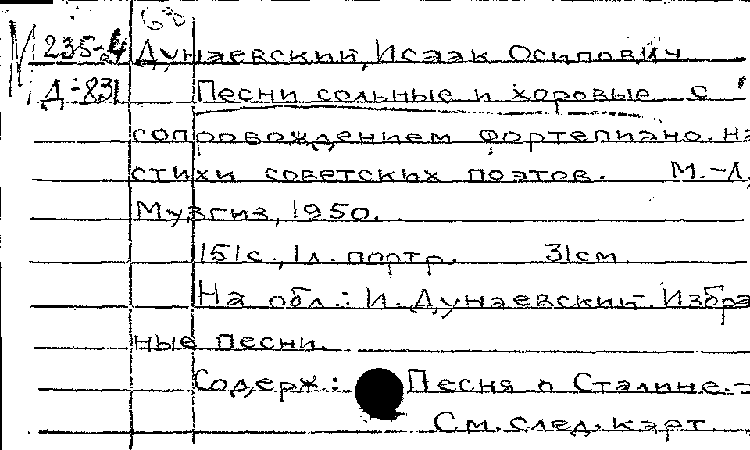 68
М 235-4 Дунаевский, Исаак Осипович
Д-831 Песни сольные и хоровые с
сопровождением фортепиано. На
стихи советских поэтов. М.-Л,
Музгиз, 1950.
151с., 1л. портр. 31см
На обл.: И. Дунаевский. Избра
ные песни.
Содерж.: Песня о Сталине.-
См. след. карт.